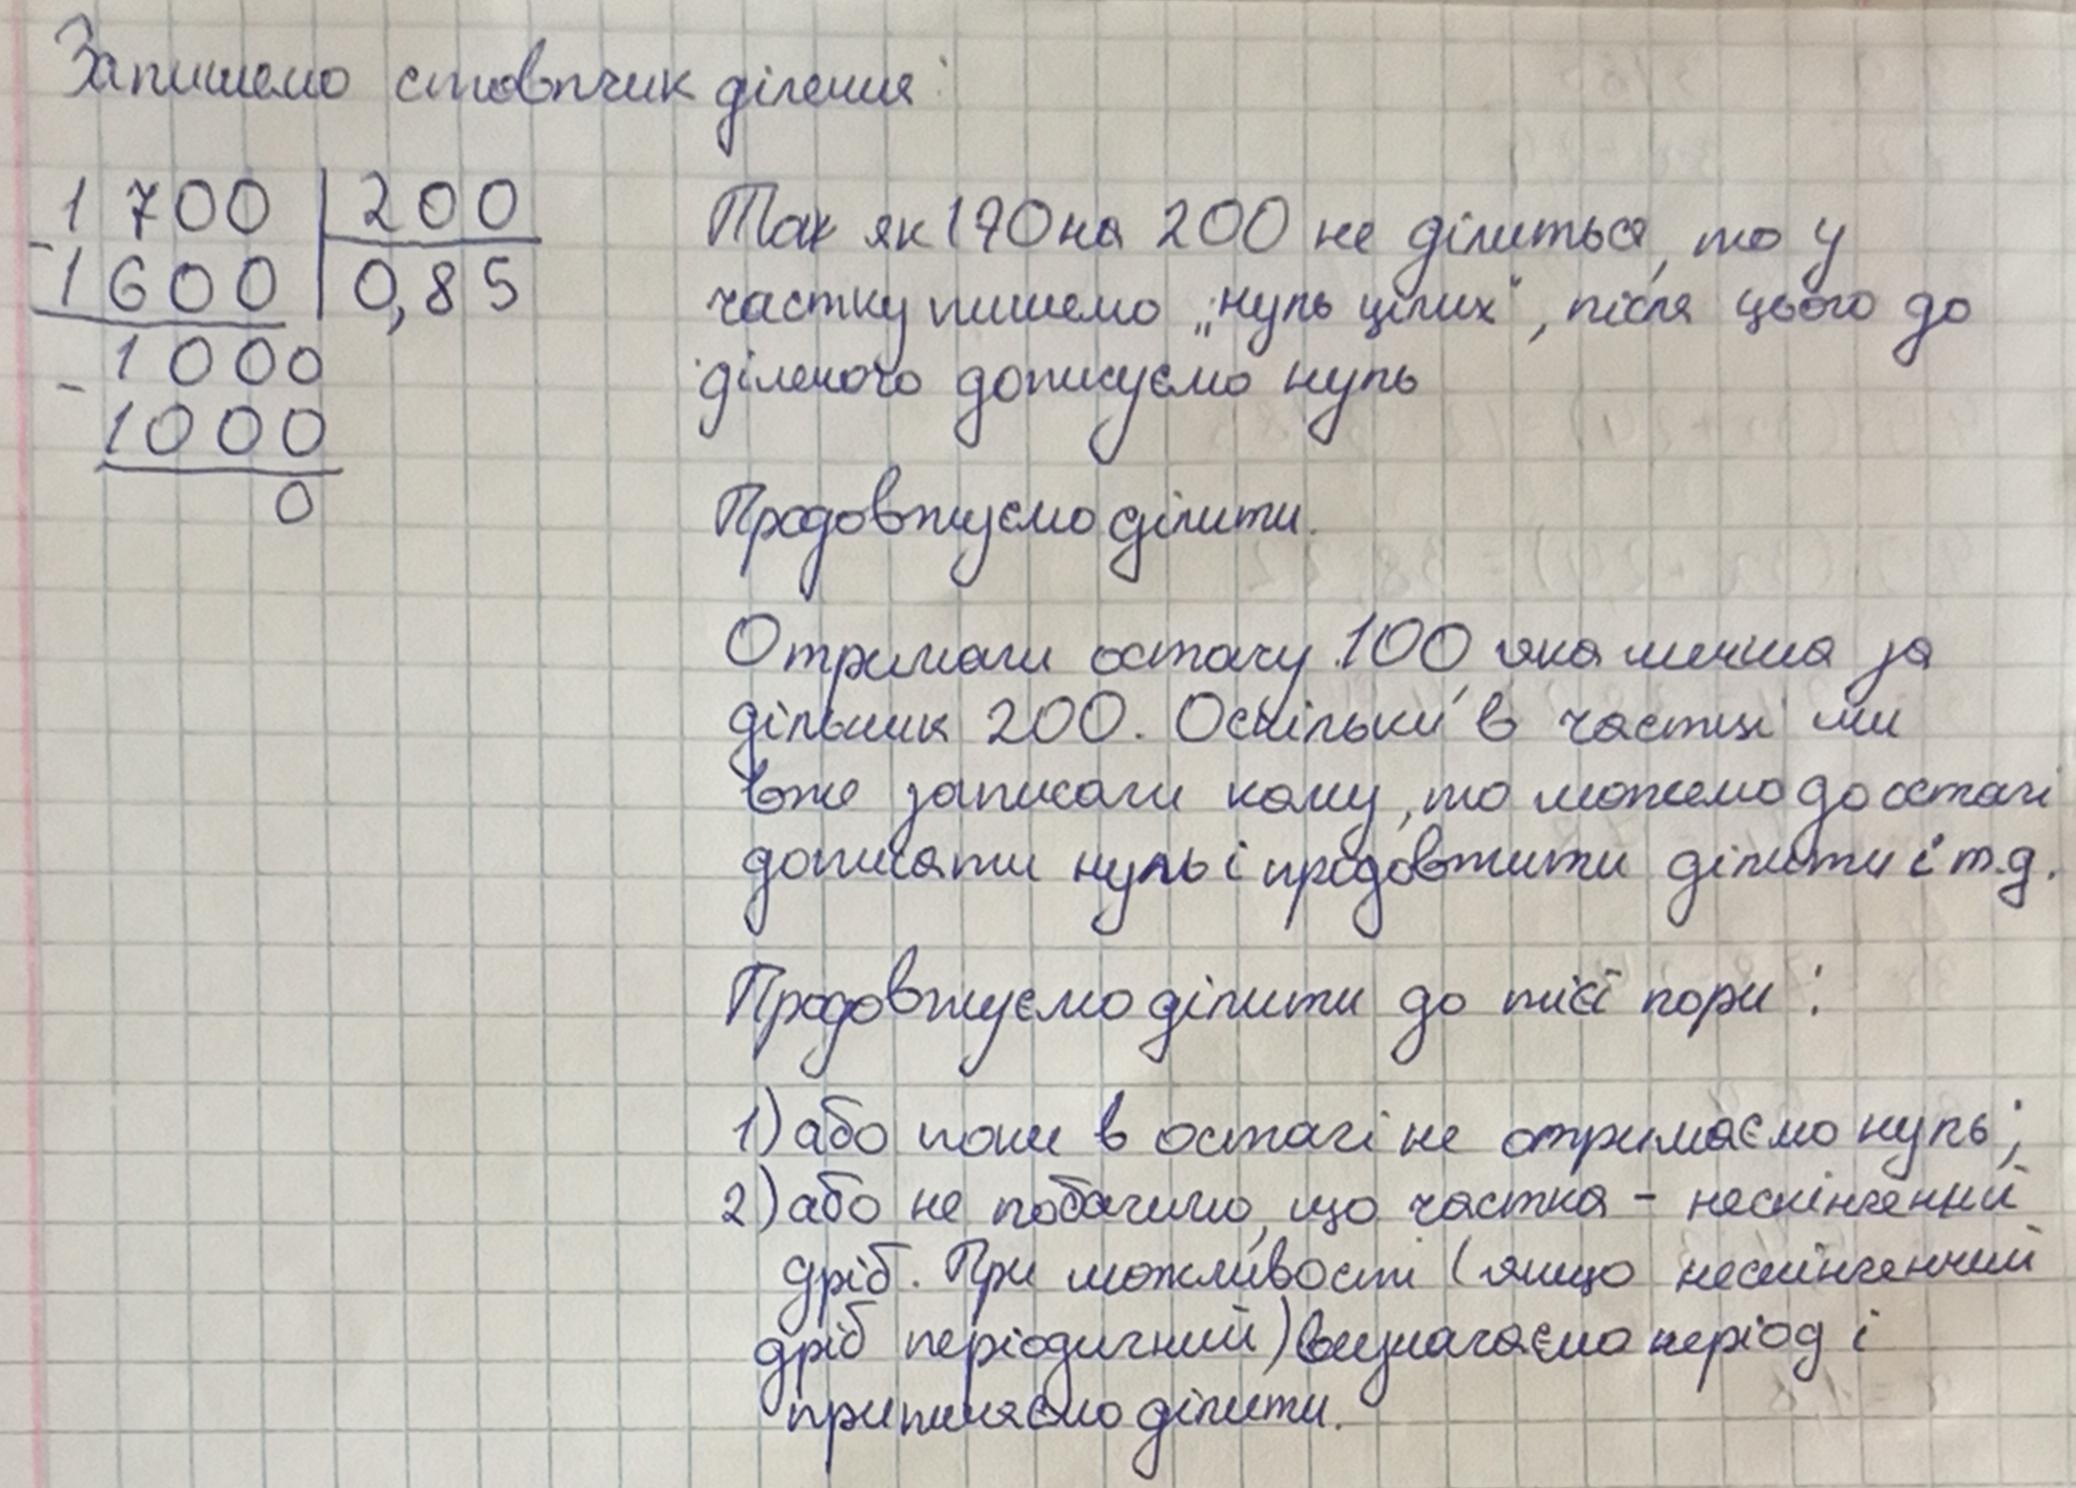 Запишемо стовпчик ділення:
1700 | 200
- 1600 | 0,85
1000
- 1000
0
Так як 170 на 200 не ділиться, то у
частку пишемо „нуль цілих", після цього до
діленого дописуємо нуль
Продовжуємо ділити.
Отримали остачу 100, яка менша за
дільник 200. Оскільки в частці ми
вже записали кому, то можемо до остачі
дописати нуль і продовжити ділити і т.д.
Продовжуємо ділити до тієї пори:
1) або поки в остачі не отримаємо нуль;
2) або не побачимо, що частка - нескінченний
дріб. При можливості (якщо нескінченний
дріб періодичний) визначаємо період і
припиняємо ділити.